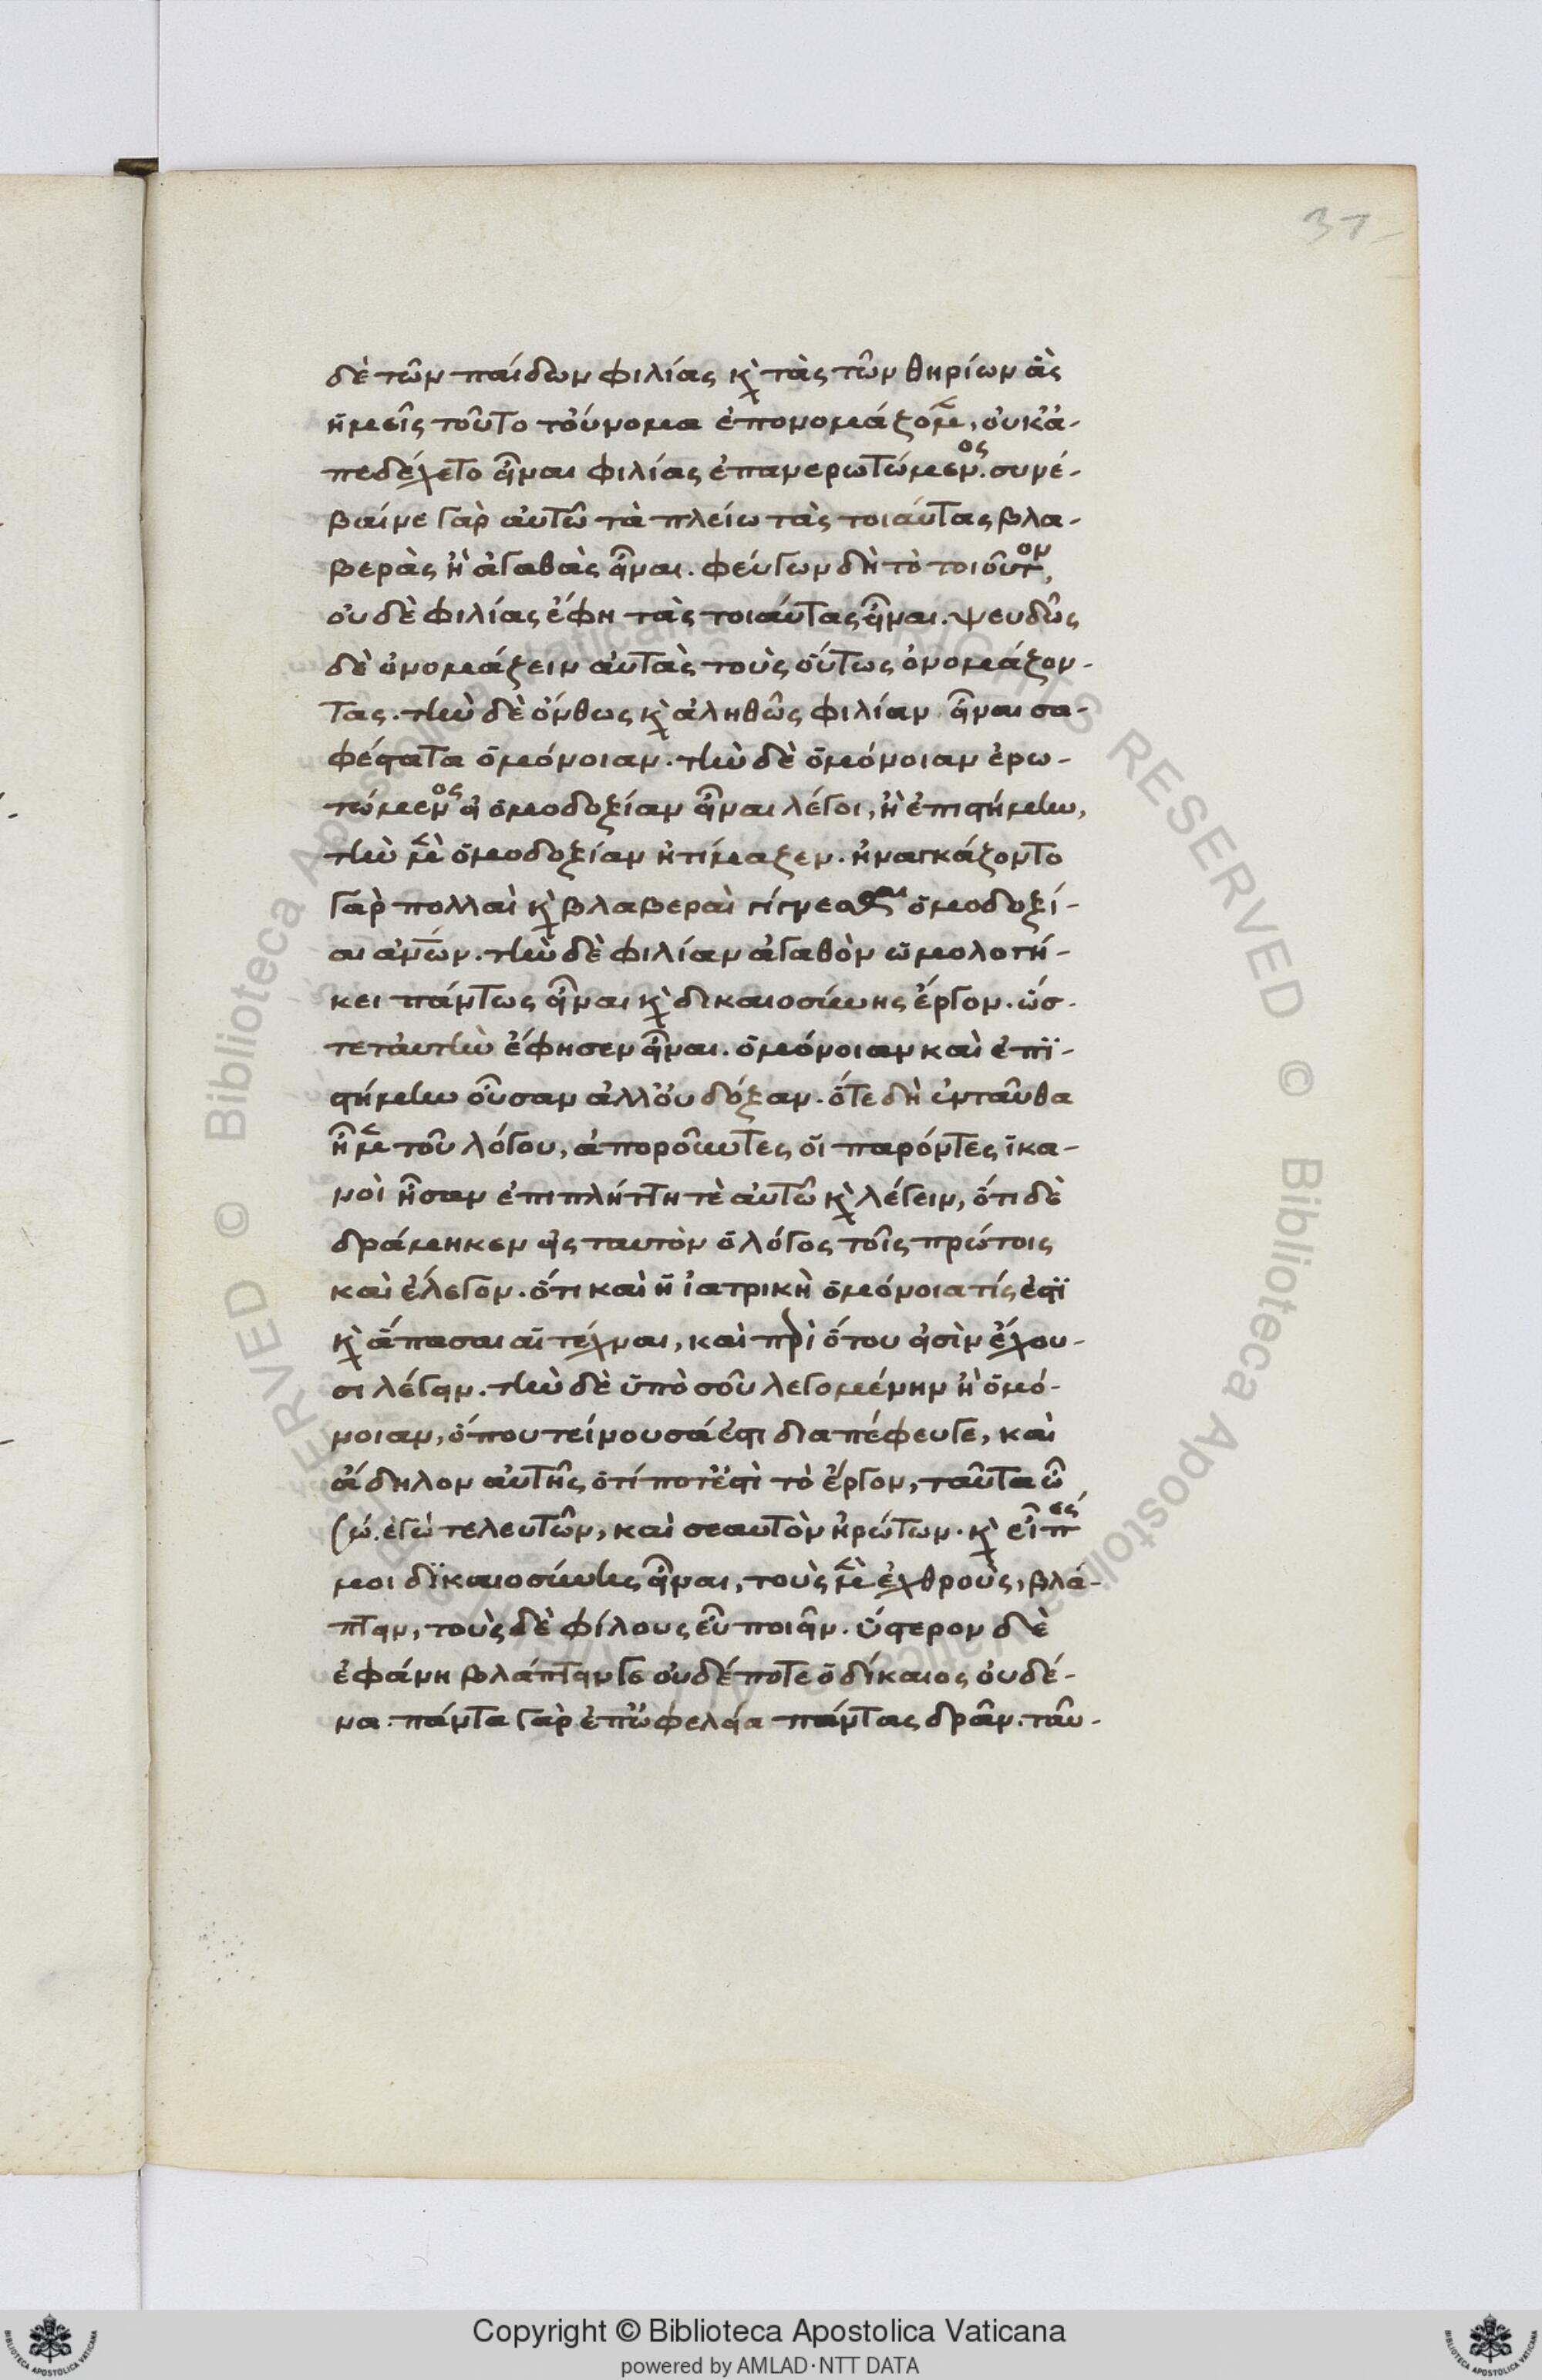 37
δὲ τῶν παίδων φιλίας κ̀ τὰς τῶν θηρίων ἃς
ἡμεῖς τοῦτο τοὔνομα ἐπονομάζομ̃, οὐκ ἀ-
πεδέχετο εἶναι φιλίας ἐπανερωτώμενος. συνέ-
βαινε γὰρ αὐτῶ τὰ πλείω τὰς τοιαύτας βλα-
βερὰς ἢ ἀγαθὰς εἶναι. φεύγων δὴ τὸ τοιοῦτον,
οὐδὲ φιλίας ἔφη τὰς τοιαύτας εἶναι. ψευδῶς
δὲ ὀνομάζειν αὐτὰς τοὺς οὕτως ὀνομάζον-
τας. τὴν δὲ ὄνθως κ̀ ἀληθῶς φιλίαν εἶναι σα-
φέστατα ὁμόνοιαν. τὴν δὲ ὁμόνοιαν ἐρω-
τώμενος εἰ ὁμοδοξίαν εἶναι λέγοι, ἢ ἐπιστήμην,
τὴν μ̃ὲ ὁμοδοξίαν ἠτίμαζεν. ἠναγκάζοντο
γὰρ πολλαὶ κ̀ βλαβεραὶ γίγνεσθαι ὁμοδοξί-
αι ἀν̅ων. τὴν δὲ φιλίαν ἀγαθὸν ὡμολογή-
κει πάντως εἶναι κ̀ δικαιοσύνης ἔργον. ὥσ-
τε ταὐτὴν ἔφησεν εἶναι. ὁμόνοιαν καὶ ἐπϊ-
στήμην οὖσαν ἀλλ' οὐ δόξαν. ὅτε δὴ ἐνταῦθα
ἦμ̃ τοῦ λόγου, ἀποροῦντες οἱ παρόντες ἱκα-
νοὶ ἦσαν ἐπιπλήττη τὲ αὐτῶ κ̀ λέγειν, ὅτι δὲ
δράμηκεν εἰς ταυτὸν ὁ λόγος τοῖς πρώτοις
καὶ ἔλεγον. ὅτι καὶ ἡ ἰατρικὴ ὁμόνοια τίς ἐστϊ
κ̀ ἅπασαι αἱ τέχναι, καὶ πρὶ ὅτου εἰσὶν ἔχου-
σι λέγειν. τὴν δὲ ὑπὸ σοῦ λεγομένην ἢ ὁμό-
νοιαν, ὅπου τείνουσά ἐστι διαπέφευγε, καὶ
ἄδηλον αὐτῆς ὅτί ποτ' ἐστὶ τὸ ἔργον, ταῦτα ὦ
(ώ. ἐγὼ τελευτῶν, καὶ σεαυτὸν ἠρώτων. κ̀ εἶπές
μοι δϊκαιοσύνης εἶναι, τοὺς μ̃ὲ ἐχθροὺς, βλά-
πτειν, τοὺς δὲ φίλους εὖ ποιεῖν. ὕστερον δὲ
ἐφάνη βλάπτειν γε οὐδέποτε ὁ δίκαιος οὐδέ-
να. πάντα γὰρ ἐπ' ὠφελεία πάντας δρᾶν. ταῦ-
Copyright © Biblioteca Apostolica Vaticana
powered by AMLAD·NTT DATA